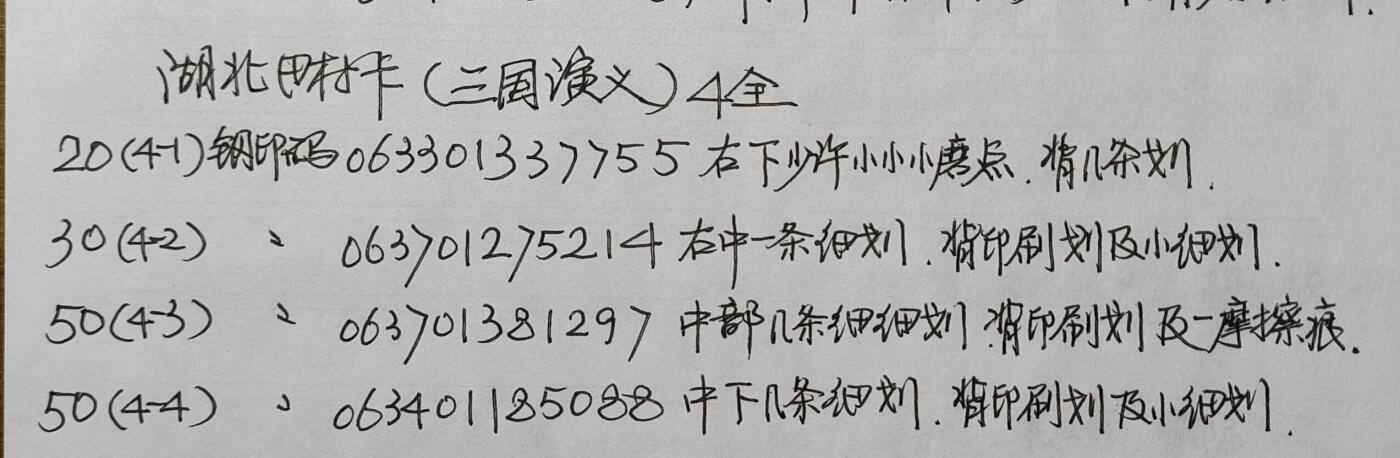 湖北田村卡(三国演义)4全
20(4-1)钢印码063301337755右下少许小小小磨点.背几条划.
30(4-2) 〃 063701275214右中一条细划.背印刷划及小细划.
50(4-3) 〃 063701381297中部几条细细划.背印刷划及一摩擦痕.
50(4-4) 〃 063401185088中下几条细划.背印刷划及小细划.